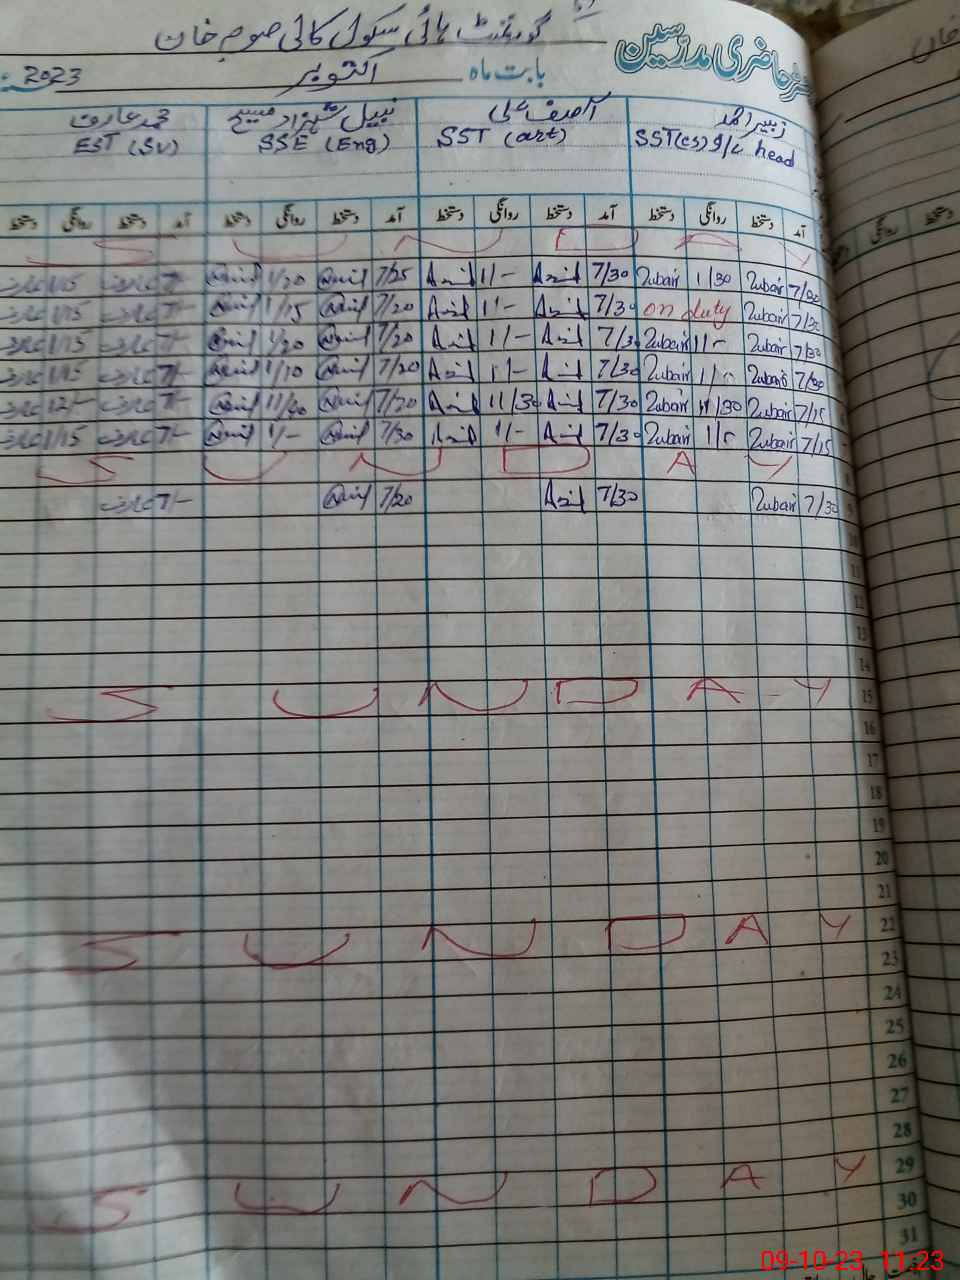 گورنمنٹ ہائی سکول کالی صوبہ خان
رجسٹر حاضری مدرسین
بابت ماہ اکتوبر 2023
زبیر احمد آصف علی نبیل شہزاد مسیح محمد عارف
SST(CS) I/C head SST (art) SSE (Eng) EST (SV)
آمد دستخط روانگی دستخط آمد دستخط روانگی دستخط آمد دستخط روانگی دستخط آمد دستخط روانگی دستخط
S U N D A Y
عارف 1/15 عارف 7/- 1/20 7/25 Asif 1/- Asif 7/30 Zubair 1/30 Zubair 7/30
عارف 1/15 عارف 7/- 1/15 7/20 Asif 1/- Asif 7/30 on duty Zubair 7/30
عارف 1/15 عارف 7/- 1/20 7/20 Asif 1/- Asif 7/30 Zubair 1/- Zubair 7/30
عارف 1/15 عارف 7/- 1/10 7/20 Asif 1/- Asif 7/30 Zubair 1/- Zubair 7/30
عارف 12/- عارف 7/- 11/20 7/20 Asif 11/30 Asif 7/30 Zubair 11/30 Zubair 7/15
عارف 1/15 عارف 7/- 1/- 7/30 Asif 1/- Asif 7/30 Zubair 1/- Zubair 7/15
S U N D A Y
عارف 7/- 7/20 Asif 7/30 Zubair 7/30 9
10
11
12
13
14
S U N D A Y 15
16
17
18
19
20
21
S U N D A Y 22
23
24
25
26
27
28
S U N D A Y 29
30
31
09-10-23 11:23